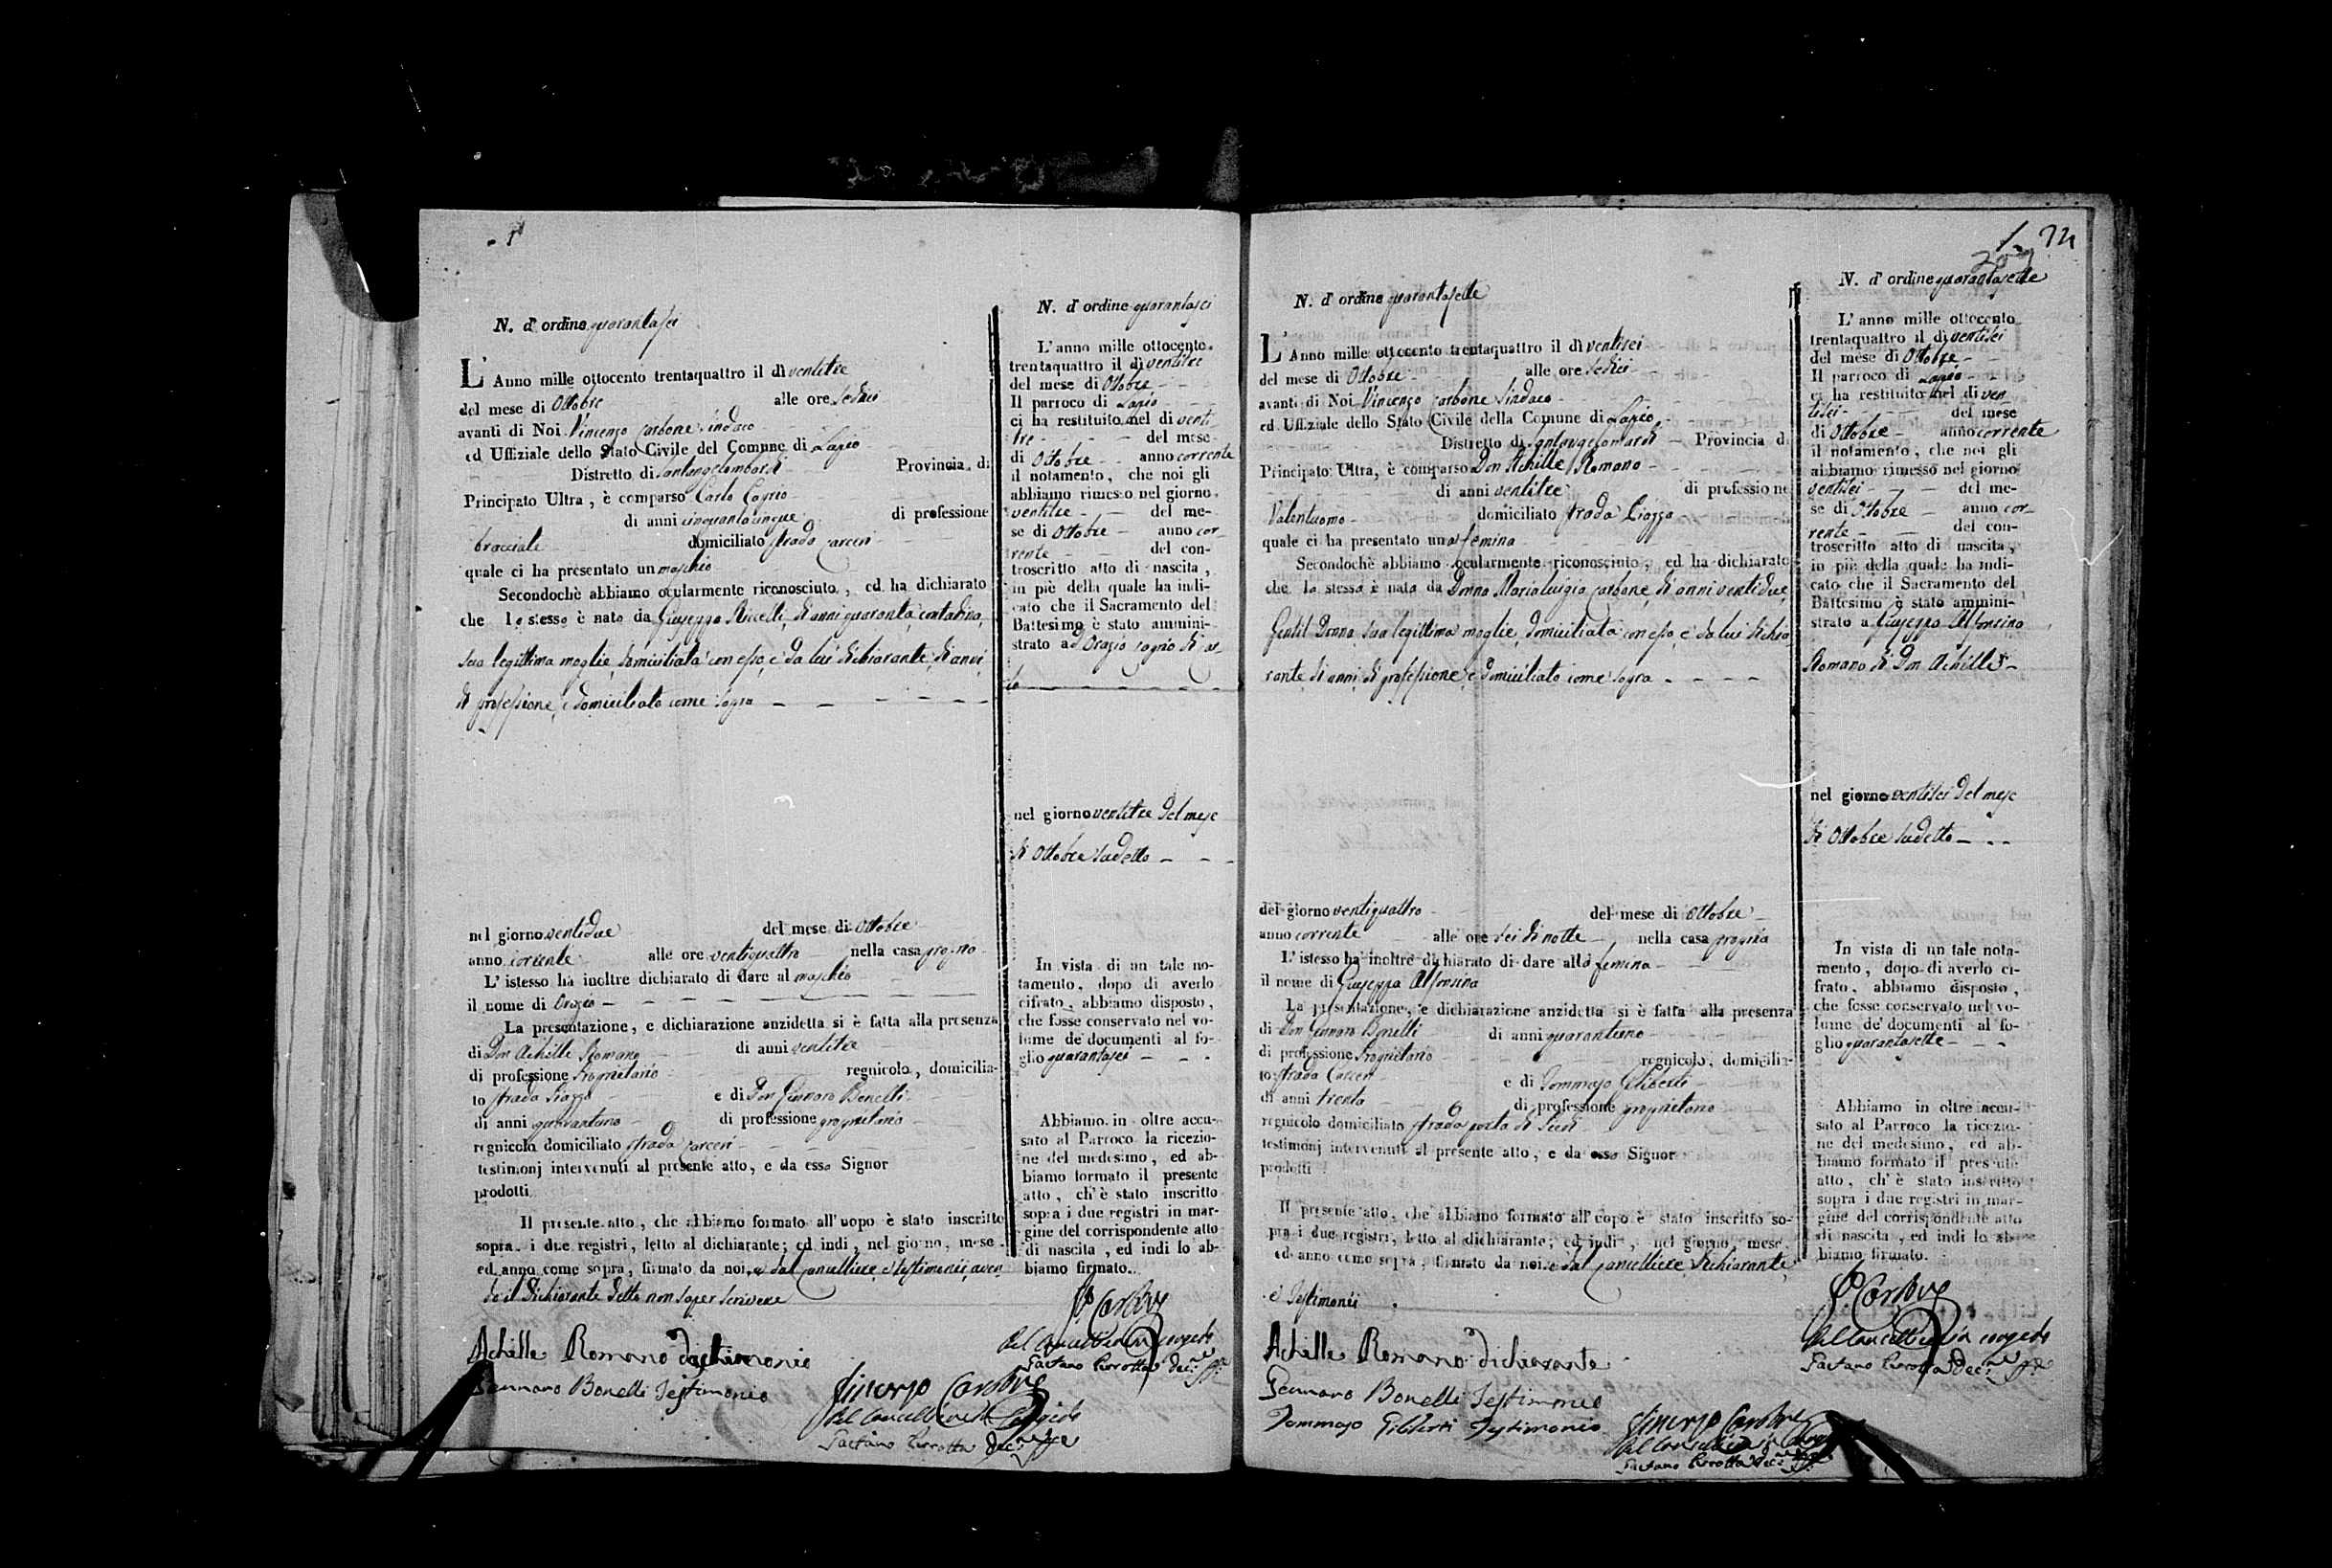 N. d'ordine quarantasei
L'Anno mille ottocento trentaquattro il dì ventitre
del mese di Ottobre alle ore sedici
avanti di Noi Vincenzo Carbone Sindaco
ed Uffiziale dello Stato Civile del Comune di Lapio
Distretto di Santangelombardi Provincia di
Principato Ultra, è comparso Carlo
di anni cinquantacinque di professione
bracciale domiciliato strada Carceri
quale ci ha presentato un maschio
Secondochè abbiamo ocularmente riconosciuto, ed ha dichiarato
che lo stesso è nato da Giuseppa di anni quaranta, contadina,
sua legittima moglie, domiciliata con esso, e da lui dichiarante, di anni,
di professione, e domiciliato come sopra
nel giorno ventidue del mese di Ottobre
anno corrente alle ore ventiquattro nella casa propria
L'istesso ha inoltre dichiarato di dare al maschio
il nome di Orazio
La presentazione, e dichiarazione anzidetta si è fatta alla presenza
di Don Achille Romano di anni ventitre
di professione Proprietario regnicolo, domicilia-
to strada Piazza e di Don Gennaro Bonelli
di anni quarantuno di professione proprietario
regnicolo domiciliato strada Carceri
testimonj intervenuti al presente atto, e da esso Signor
prodotti
Il presente atto, che abbiamo formato all'uopo è stato inscritto
sopra i due registri, letto al dichiarante; ed indi, nel giorno, mese
ed anno come sopra, firmato da noi, e dal Cancelliere, e testimonii, aven
do il dichiarante detto non saper scrivere
Achille Romano testimonio
Gennaro Bonelli Testimonio
Vincenzo Carbone
Pel Cancelliere in congedo
Gaetano Pirrotta
N. d'ordine quarantasei
L'anno mille ottocento
trentaquattro il dì ventitre
del mese di Ottobre
Il parroco di Lapio
ci ha restituito nel dì venti-
tre del mese
di Ottobre anno corrente
il notamento, che noi gli
abbiamo rimesso nel giorno
ventitre del me-
se di Ottobre anno cor-
rente del con-
troscritto atto di nascita,
in piè della quale ha indi-
cato che il Sacramento del
Battesimo è stato ammini-
strato ad Orazio di Car
lo
nel giorno ventitre del mese
di Ottobre sudetto
In vista di un tale no-
tamento, dopo di averlo
cifrato, abbiamo disposto,
che fosse conservato nel vo-
lume de' documenti al fo-
glio quarantasei
Abbiamo in oltre accu-
sato al Parroco la ricezio-
ne del medesimo, ed ab-
biamo formato il presente
atto, ch'è stato inscritto
sopra i due registri in mar-
gine del corrispondente atto
di nascita, ed indi lo ab-
biamo firmato.
Carbone
Pel Cancelliere in congedo
Gaetano Pirrotta
N. d'ordine quarantasette
L'Anno mille ottocento trentaquattro il dì ventisei
del mese di Ottobre alle ore sedici
avanti di Noi Vincenzo Carbone Sindaco
ed Uffiziale dello Stato Civile della Comune di Lapio
Distretto di Santangelomardi Provincia di
Principato Ultra, è comparso Don Achille Romano
di anni ventitre di professione
Valentuomo domiciliato strada Piazza
quale ci ha presentato una femina
Secondochè abbiamo ocularmente riconosciuto, ed ha dichiarato
che la stessa è nata da Donna Marialuigia Carbone, di anni ventidue,
Gentil Donna, sua legittima moglie, domiciliata con esso, e da lui dichia
rante, di anni, di professione, e domiciliato come sopra
del giorno ventiquattro del mese di Ottobre
anno corrente alle ore sei di notte nella casa propria
L'istesso ha inoltre dichiarato di dare alla femina
il nome di Giuseppa Alfonsina
La presentazione, e dichiarazione anzidetta si è fatta alla presenza
di Don Gennaro Bonelli di anni quarantuno
di professione Proprietario regnicolo, domicilia-
to strada Carceri e di Tommaso Giliberti
di anni trenta di professione proprietario
regnicolo domiciliato strada porta di
testimonj intervenuti al presente atto, e da esso Signor
prodotti
Il presente atto, che abbiamo formato all'uopo è stato inscritto so-
pra i due registri, letto al dichiarante; ed indi, nel giorno, mese,
ed anno come sopra, firmato da noi, e dal Cancelliere, dichiarante,
e Testimonii
Achille Romano dichiarante
Gennaro Bonelli Testimonio
Tommaso Giliberti Testimonio
Vincenzo Carbone
Pel Cancelliere in congedo
Gaetano Pirrotta
N. d'ordine quarantasette
L'anno mille ottocento
trentaquattro il dì ventisei
del mese di Ottobre
Il parroco di Lapio
ci ha restituito nel dì ven-
tisei del mese
di Ottobre anno corrente
il notamento, che noi gli
abbiamo rimesso nel giorno
ventisei del me-
se di Ottobre anno cor-
rente del con-
troscritto atto di nascita,
in piè della quale ha indi-
cato che il Sacramento del
Battesimo è stato ammini-
strato a Giuseppa Alfonsina
Romano di Don Achille
nel giorno ventisei del mese
di Ottobre sudetto
In vista di un tale nota-
mento, dopo di averlo ci-
frato, abbiamo disposto,
che fosse conservato nel vo-
lume de' documenti al fo-
glio quarantasette
Abbiamo in oltre accu-
sato al Parroco la ricezio-
ne del medesimo, ed ab-
biamo formato il presente
atto, ch'è stato inscritto
sopra i due registri in mar-
gine del corrispondente atto
di nascita, ed indi lo ab-
biamo firmato.
Carbone
Pel Cancelliere in congedo
Gaetano Pirrotta